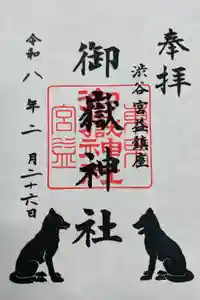 奉拝
渋谷宮益鎮座
御嶽神社
令和八年二月二十六日
宮益
御嶽神社